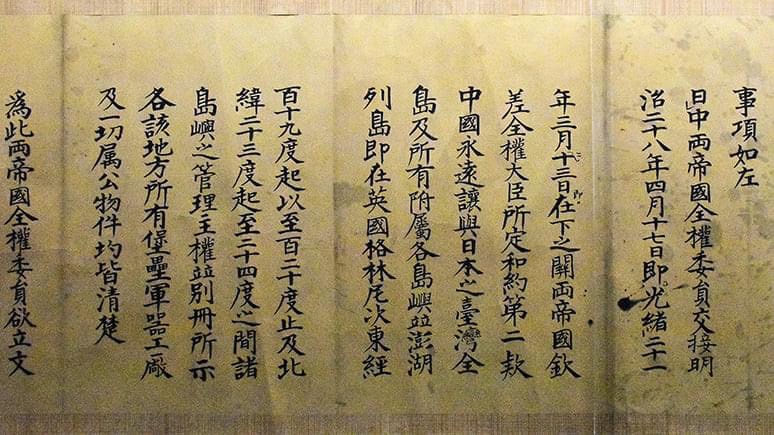 事項如左
日中両帝國全權委員交接明
治二十八年四月十七日即光緒二十一
年三月二十三日即在下之關両帝國欽
差全權大臣所定和約第二款
中國永遠讓與日本之臺灣全
島及所有附屬各島嶼竝澎湖
列島即在英國格林尼次東經
百十九度起以至百二十度止及北
緯二十三度起至二十四度之間諸
島嶼之管理主權竝別冊所示
各該地方所有堡壘軍器工廠
及一切属公物件均皆清楚
為此両帝國全權委員欲立文